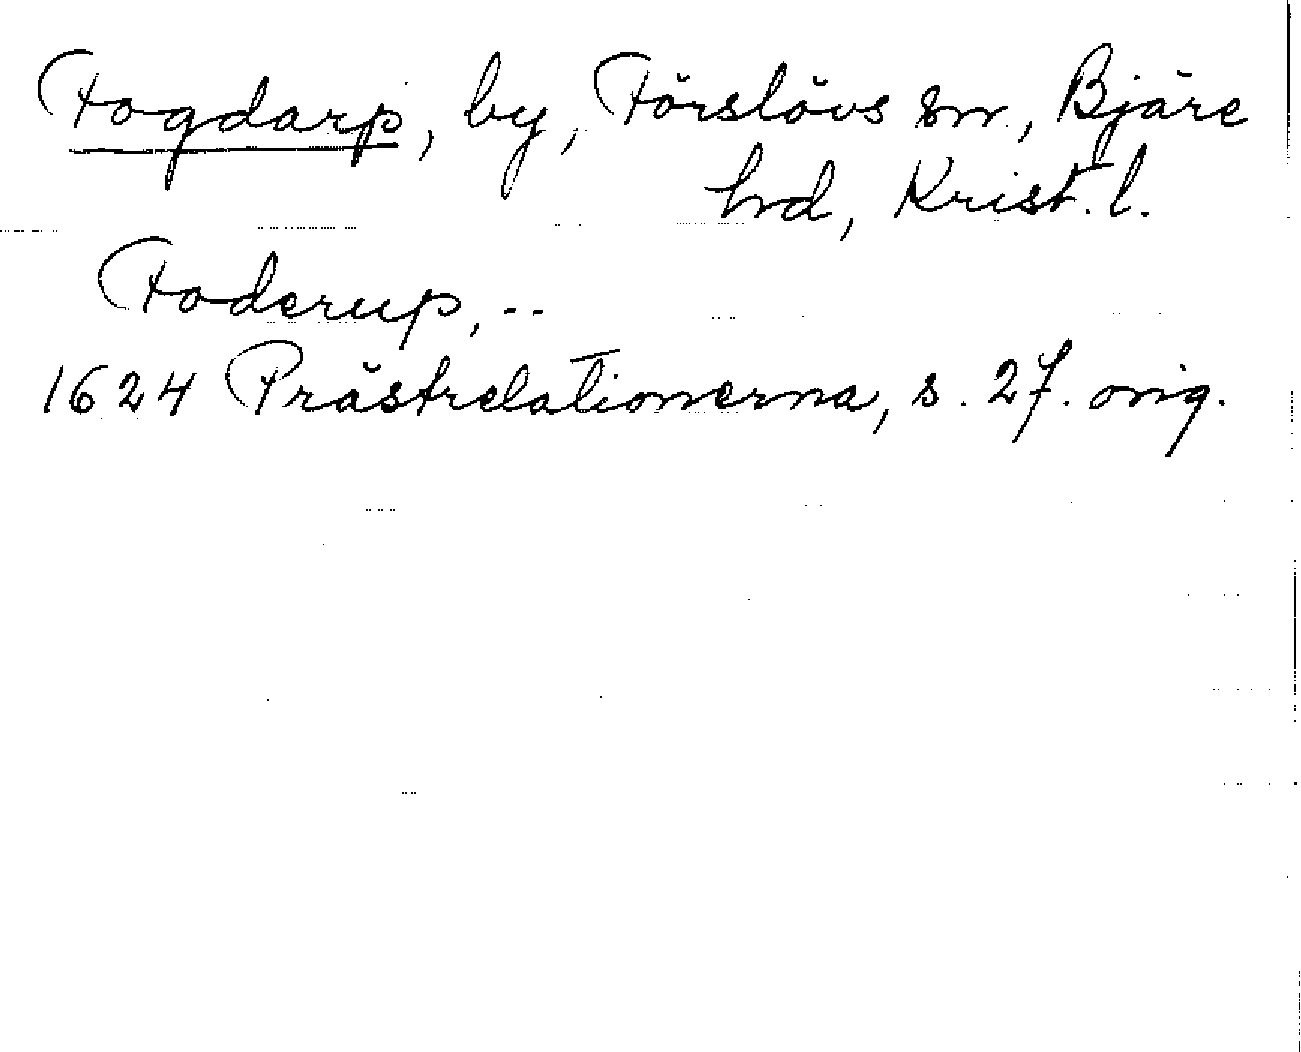 Fogdarp, by, Förslövs sn., Bjäre
hrd, Krist. l.
Foderup, --
1624 Prästrelationerna, s. 27. orig.